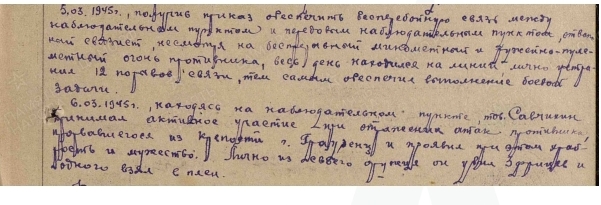 5.03.1945г., получив приказ обеспечить бесперебойную связь между
наблюдательным пунктом и передовым наблюдательным пунктом, отваж-
ный связист, несмотря на беспрерывный минометный и ружейно-пуле-
метный огонь противника, весь день находился на линии лично устра-
нил 12 порывов связи, тем самым обеспечил выполнение боевой
задачи.
6.03.1945г., находясь на наблюдательном пункте, тов. Савчихин
принимал активное участие при отражении атак противника
прорвавшегося из крепости г. Грауденц и проявил при этом храб-
рость и мужество. Лично из своего оружия он убил 3 фрицев и
одного взял в плен.